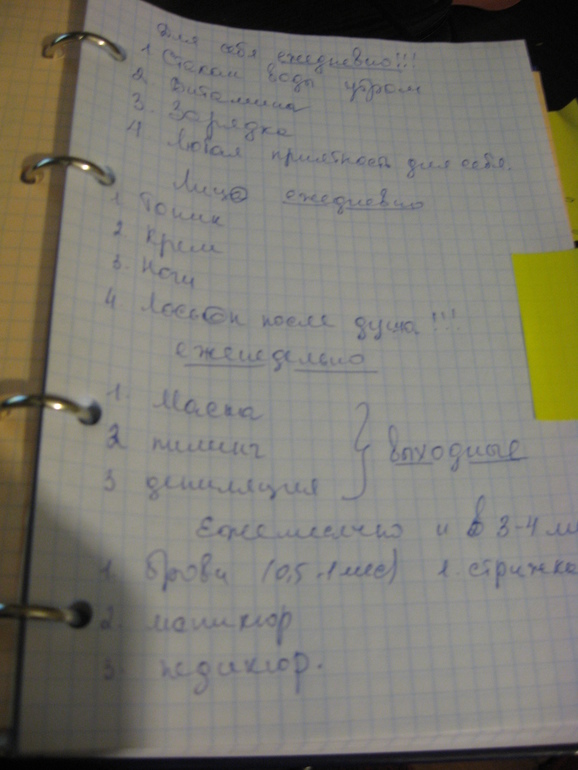 Для себя ежедневно!!!
1 Стакан воды утром
2. Витамины
3. Зарядка
4 Любая приятность для себя.
Лицо ежедневно
1 Тоник
2 Крем
3. Ноги
4 Лосьон после душа!!!
еженедельно
1. Маска
2 пилинг } выходные
3 депиляция
Ежемесячно и в 3-4
1. брови (0,5-1 мес) 1. стрижка
2. маникюр
3. педикюр.